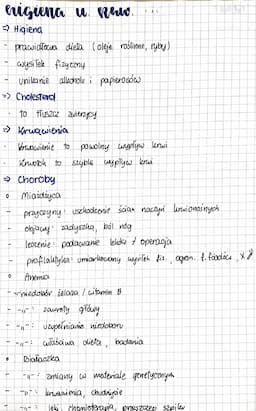 Higiena u
⇒ Higiena
- prawidłowa dieta (oleje roślinne, ryby)
- wysiłek fizyczny
- unikanie alkoholu i papierosów
⇒ Cholesterol
· to tłuszcz zwierzęcy
⇒ Krwawienia
· krwawienie to powolny wypływ krwi
· krwotok to szybki wypływ krwi
⇒ Choroby
• Miażdżyca
- przyczyny: uszkodzenie ścian naczyń krwionośnych
- objawy: zadyszka, ból nóg
- leczenie: podawanie leków / operacja
- profilaktyka: umiarkowany wysiłek fiz., ogran. f. foodów,
• Anemia
- niedobór żelaza / witamin B
- -"-: zawroty głowy
- -"-: uzupełnianie niedoboru
- -"-: właściwa dieta, badania
• Białaczka
- -"-: zmiany w materiale genetycznym
- -"-: krwawienia,
- -"-: leki, chemioterapia, przeszczep szpiku